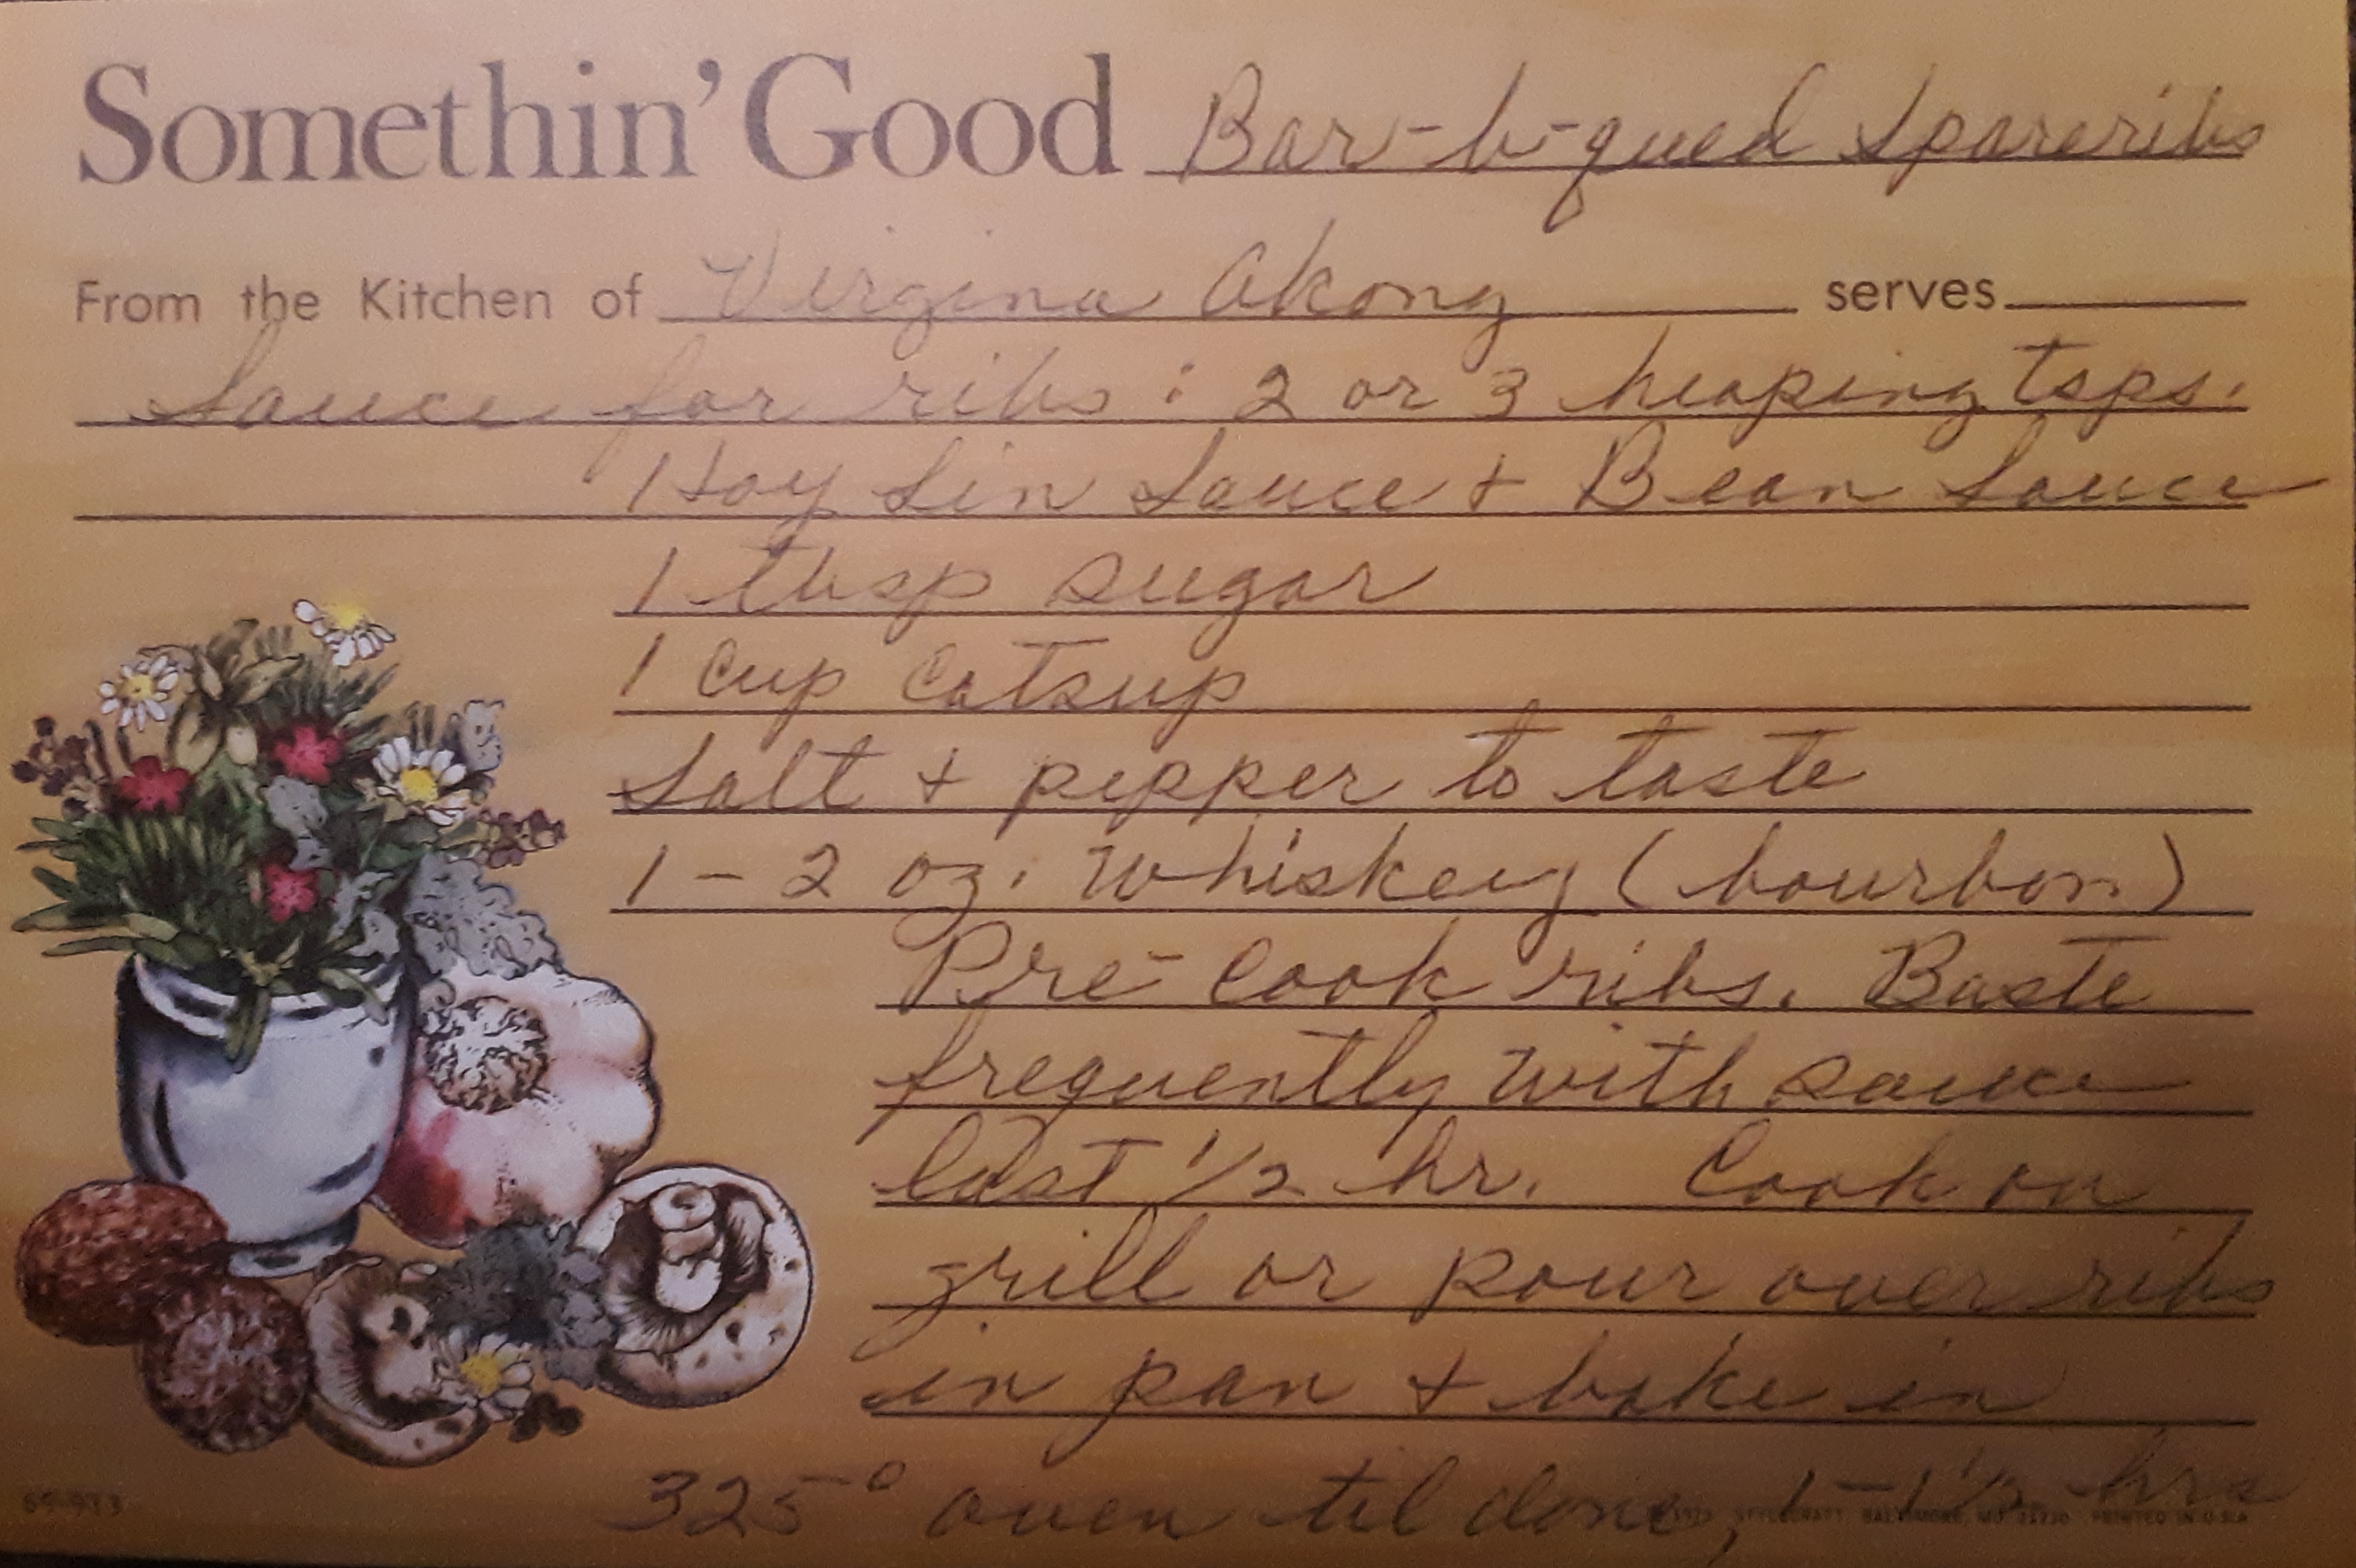 Somethin' Good Bar-b-qued Spareribs
From the Kitchen of Virgina Akong serves
Sauce for ribs: 2 or 3 heaping tsps.
Hoy Sin Sauce + Bean Sauce
1 tbsp sugar
1 cup Catsup
Salt + pepper to taste
1-2 oz. Whiskey (bourbon)
Pre-Cook ribs. Baste
frequently with sauce
last 1/2 hr. Cook on
grill or pour over ribs
in pan + bake in
325° oven til done, 1-1 1/2 hrs
69-973 STYLECRAFT BALTIMORE, MD PRINTED IN U.S.A.